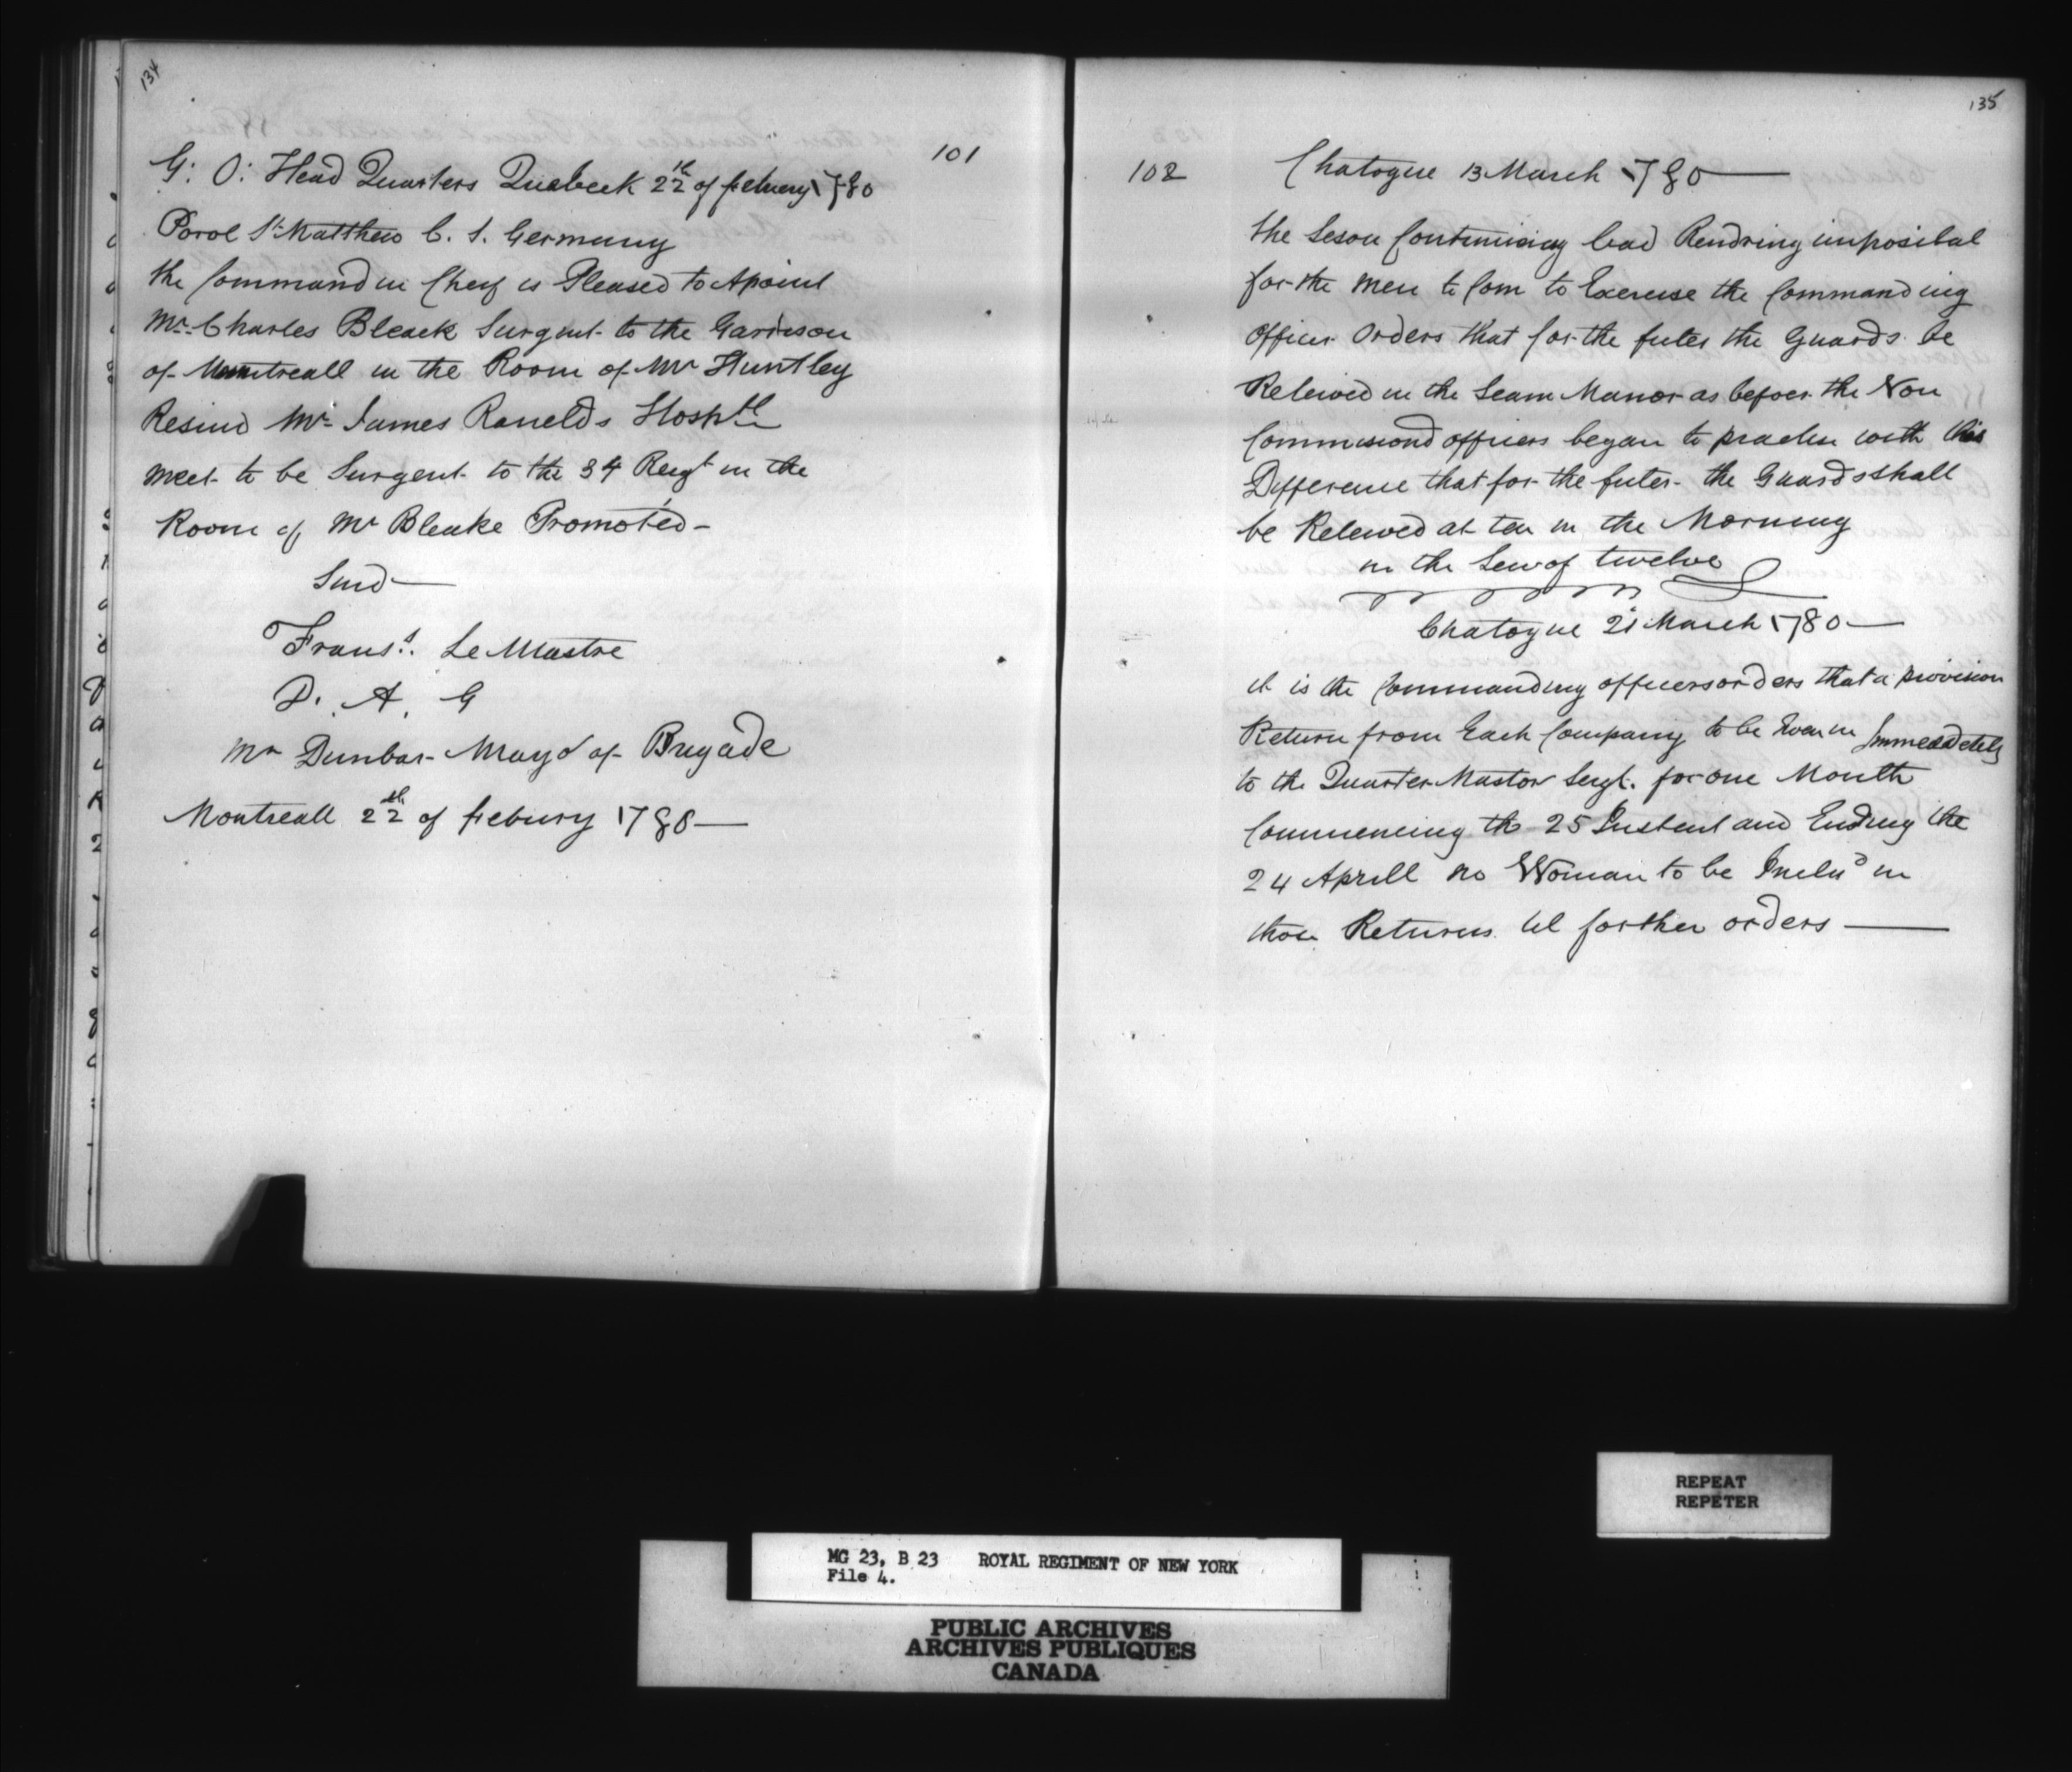 134
101
G: O: Head Quarters Quebeck 22th of febuery 1780
Parol St Matthew C. S. Germany
the Command in Cheif is Pleased to Apoint
Mr. Charles Bleack Surgent to the Garrison
of Muntreall in the Room of Mr Huntley
Resind Mr. James Ranelds Hosptl
meet to be Surgent to the 34 Reigt in the
Room of Mr Bleake Promoted-
Sind
Frans. Le Mastre
D. A. G
Mr Dunbar Mayd of Brigade
Montreall 22th of febury 1780
135
102
Chatogue 13 March 1780
the Seson Continuing bad Rendring imposibal
for the men to Com to Exercise the Commanding
Officer Orders that for the futer the Guards be
Releived in the Seam Manor as befoer the Non
Commisiond officers began to practise with this
Difference that for the futer the Guards Shall
be Releived at ten in the Morning
in the Sew of twelve
Chatogue 21 March 1780
it is the Commanding officers orders that a provision
Return from Each Company to be Given in Immeadetely
to the Quarter Mastor Sergt. for one Month
Commencing the 25 Instent and Ending the
24 Aprill no Woman to be Includ in
thou Returns til forther orders
REPEAT
REPETER
MG 23, B 23 ROYAL REGIMENT OF NEW YORK
File 4.
PUBLIC ARCHIVES
ARCHIVES PUBLIQUES
CANADA